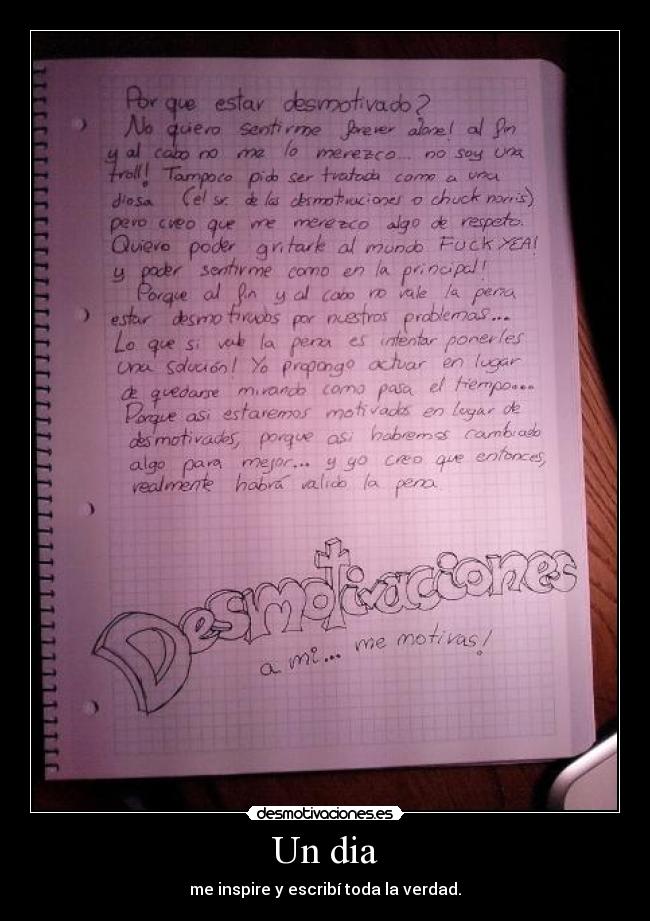 Por que estar desmotivado?
No quiero sentirme forever alone! al fin
y al cabo no me lo merezco... no soy una
troll! Tampoco pido ser tratada como a una
diosa (el sr. de las desmotivaciones o chuck norris)
pero creo que me merezco algo de respeto.
Quiero poder gritarle al mundo FUCK YEA!
y poder sentirme como en la principal!
Porque al fin y al cabo no vale la pena
estar desmotivados por nuestros problemas...
Lo que si vale la pena es intentar ponerles
una solución! Yo propongo actuar en lugar
de quedarse mirando como pasa el tiempo...
Porque asi estaremos motivados en lugar de
desmotivados, porque asi habremos cambiado
algo para mejor... y yo creo que entonces,
realmente habrá valido la pena.
Desmotivaciones
a mi... me motivas!
desmotivaciones.es
Un dia
me inspire y escribí toda la verdad.